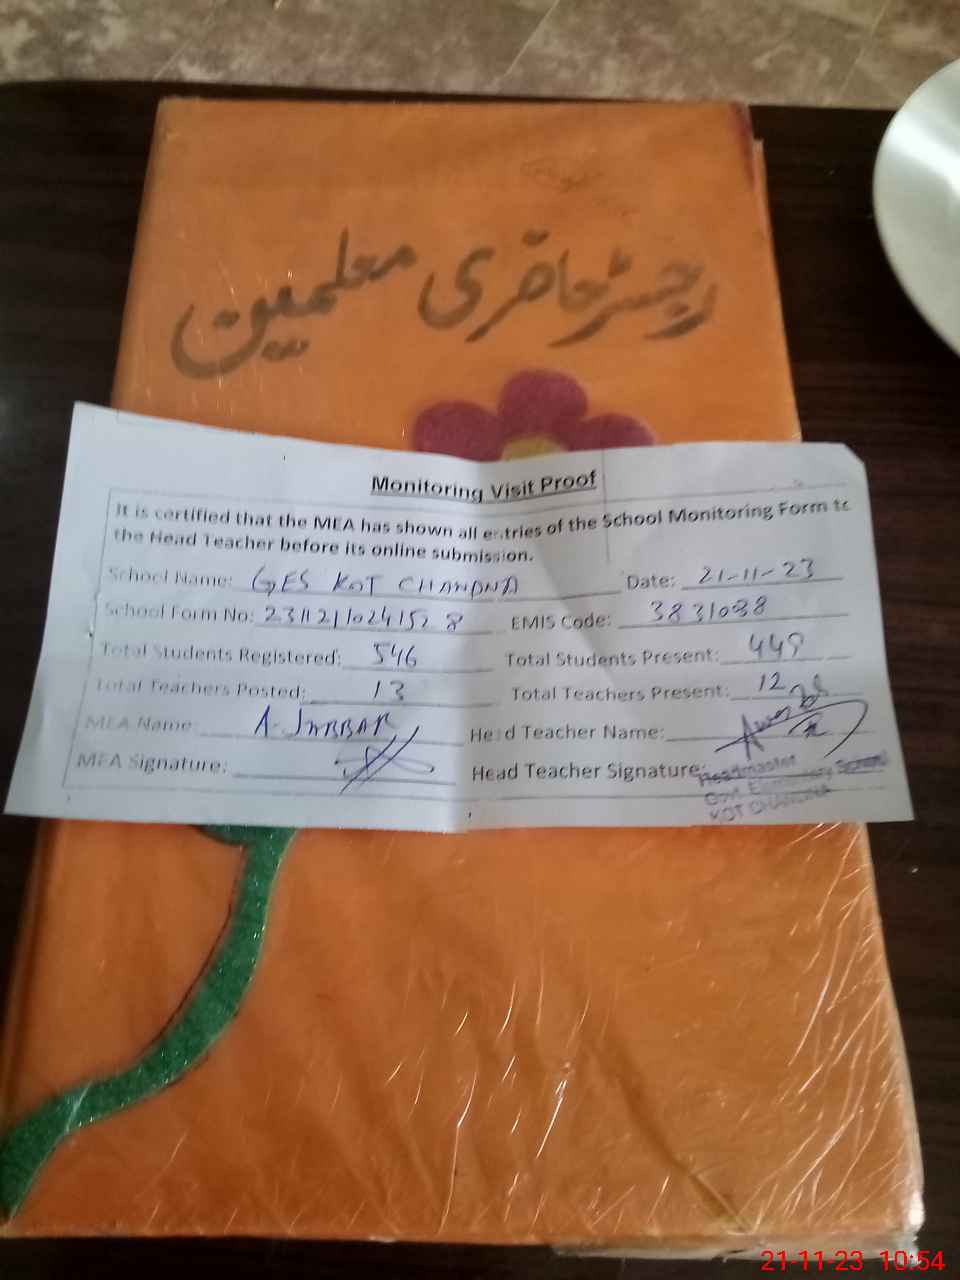 رجسٹر حاضری معلمین
Monitoring Visit Proof
It is certified that the MEA has shown all entries of the School Monitoring Form to
the Head Teacher before its online submission.
School Name: GES KOT CHANDNA Date: 21-11-23
School Form No: 23112110241528 EMIS Code: 3831038
Total Students Registered: 546 Total Students Present: 449
Total Teachers Posted: 13 Total Teachers Present: 12
MEA Name: A. JABBAR Head Teacher Name:
MEA Signature: Head Teacher Signature:
Headmaster
Govt. Elementary School
KOT CHANDNA
21-11-23 10:54